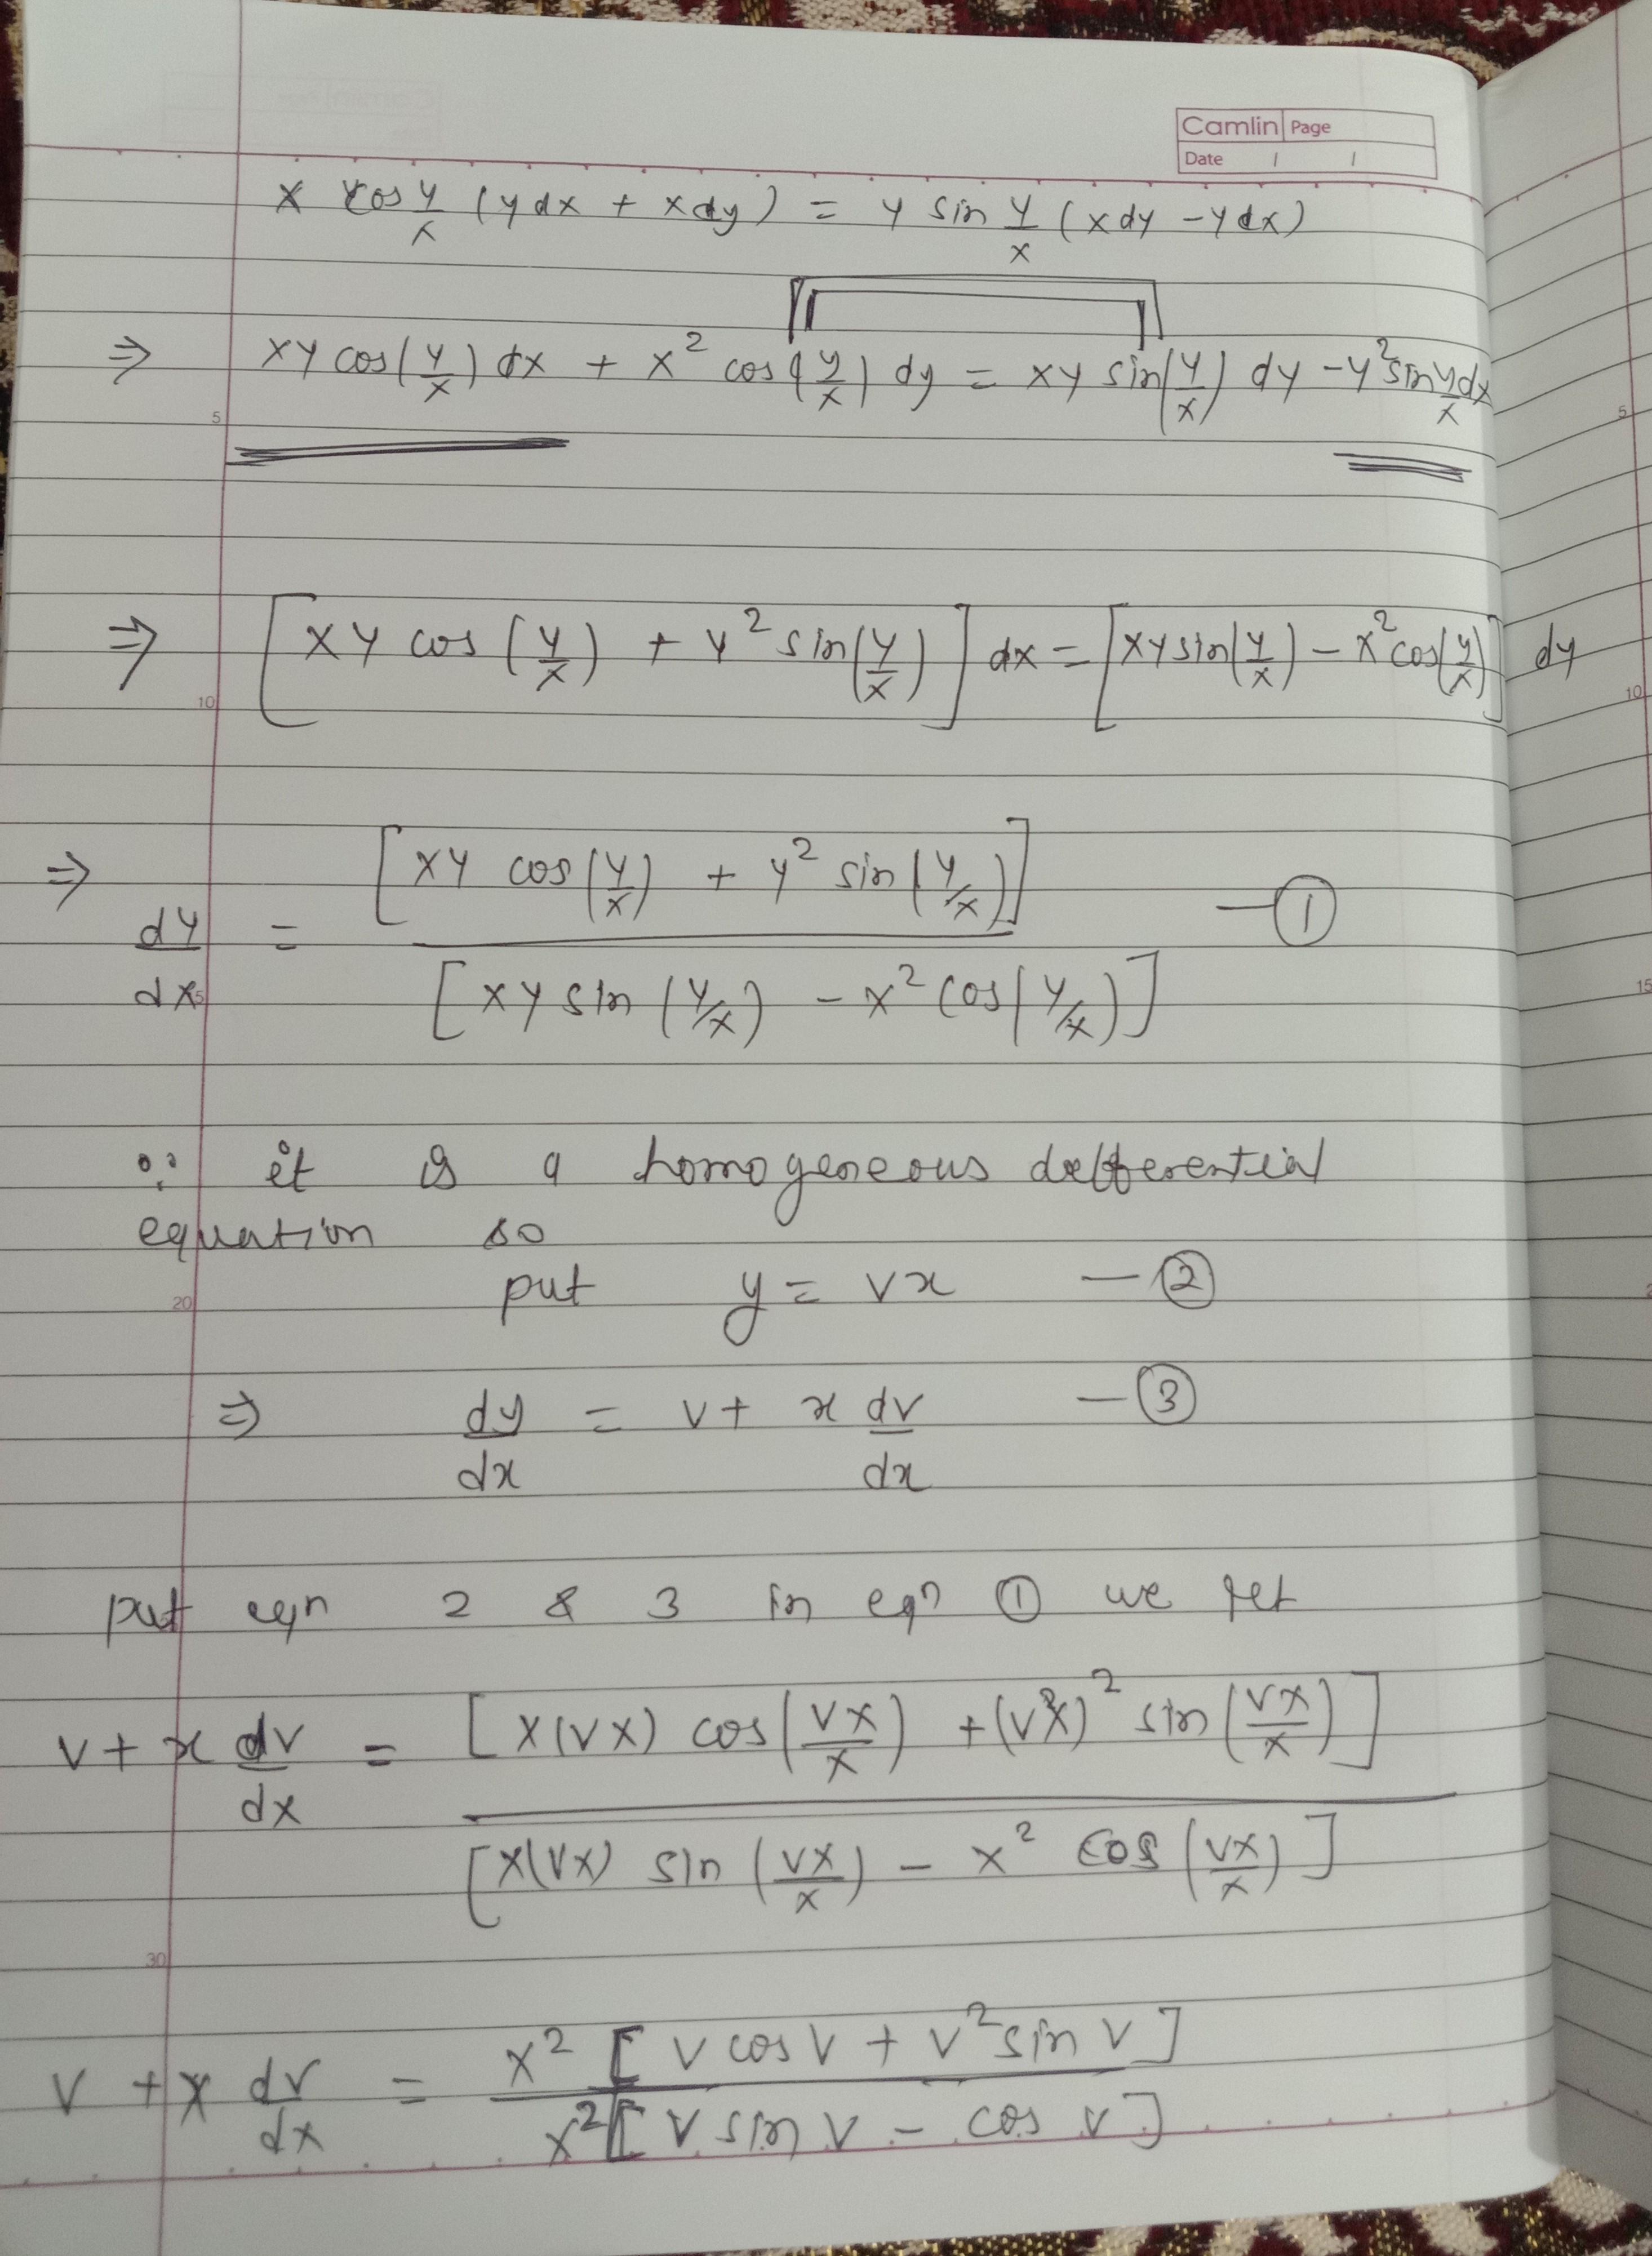 Camlin Page
Date / /
x cos y/x (ydx + xdy) = y sin y/x (xdy - ydx)
⇒ xy cos(y/x) dx + x² cos(y/x) dy = xy sin(y/x) dy - y² sin y/x dx
5
⇒ [xy cos (y/x) + y² sin(y/x)] dx = [xy sin(y/x) - x² cos(y/x)] dy
10
⇒ dy/dx = [xy cos(y/x) + y² sin(y/x)] / [xy sin (y/x) - x² cos(y/x)] — ①
∵ it is a homogeneous defferential
equation so
put y = vx — ②
20
⇒ dy/dx = v + x dv/dx — ③
put eqn 2 & 3 in eqn ① we get
v + x dv/dx = [x(vx) cos(vx/x) + (vx)² sin(vx/x)] / [x(vx) sin(vx/x) - x² cos(vx/x)]
30
v + x dv/dx = x² [v cos v + v² sin v] / x² [v sin v - cos v]